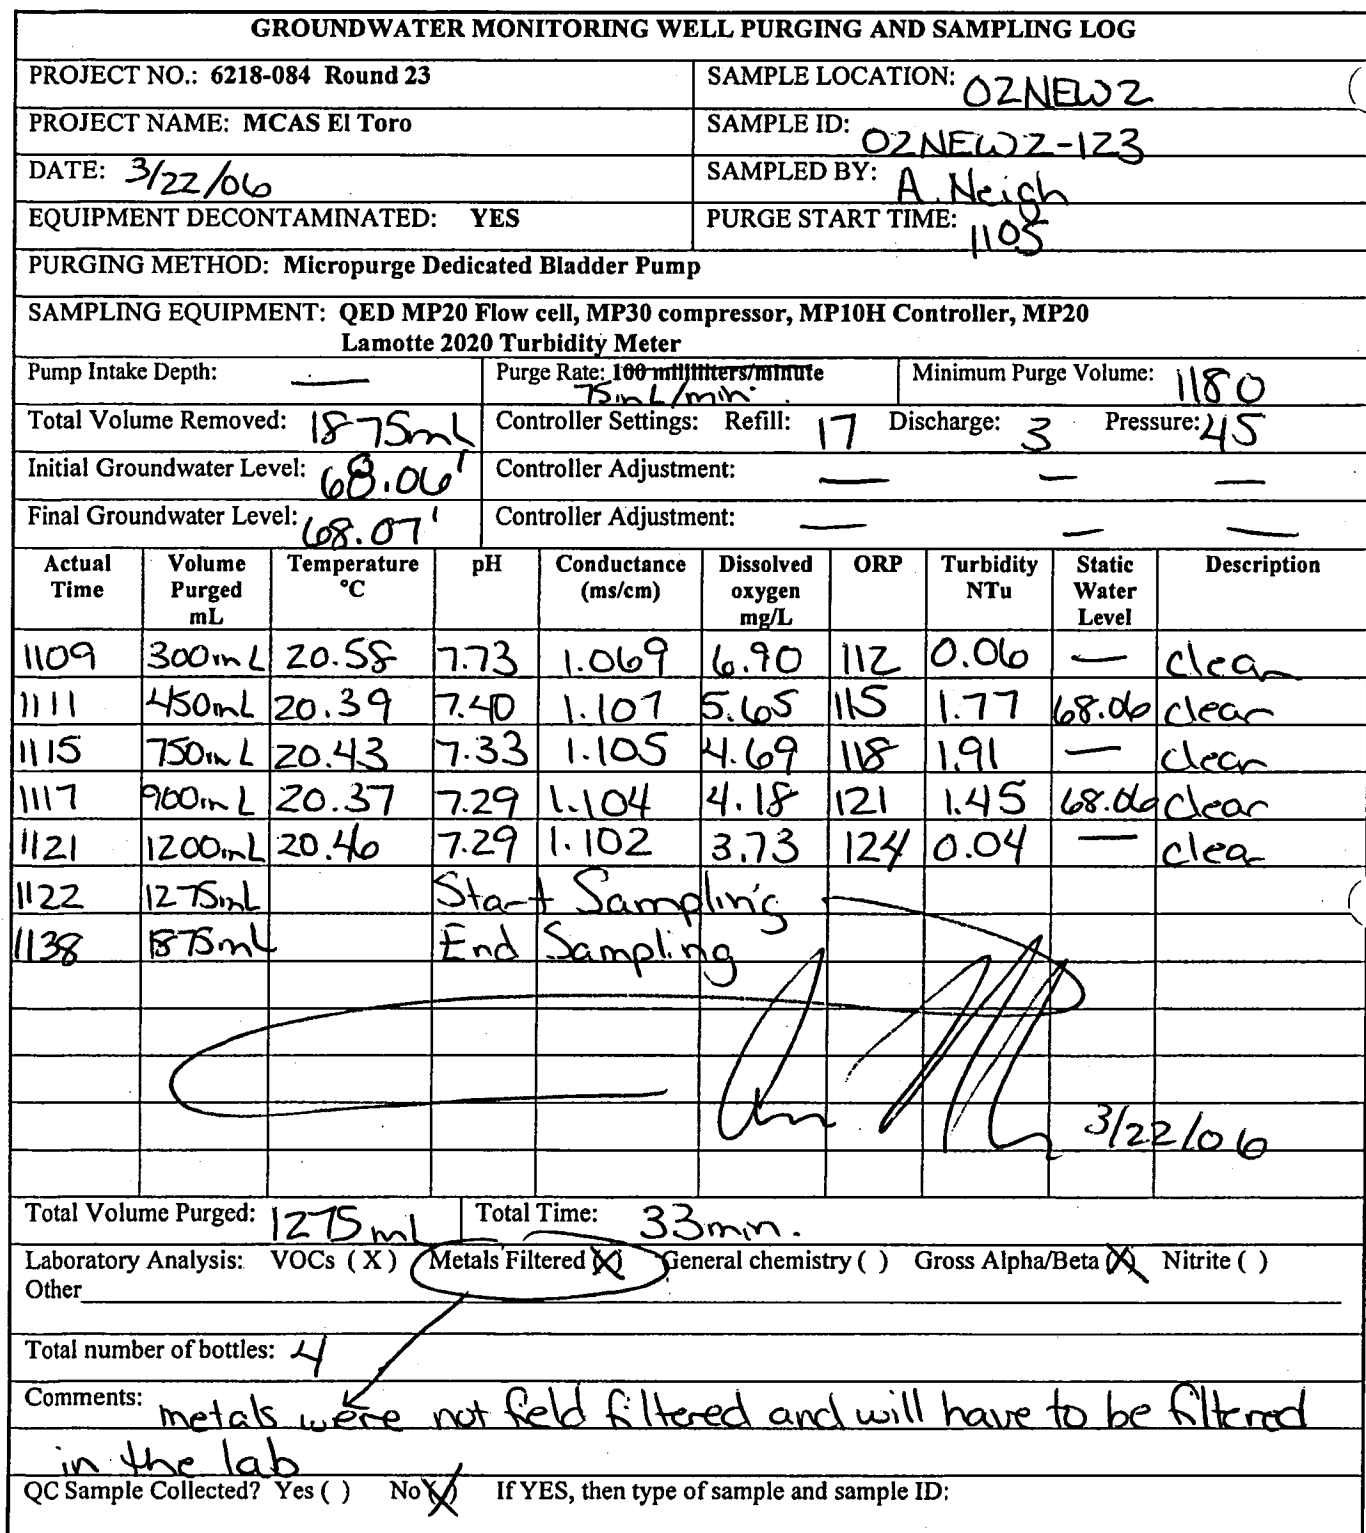 GROUNDWATER MONITORING WELL PURGING AND SAMPLING LOG
PROJECT NO.: 6218-084 Round 23 SAMPLE LOCATION: 02NEW2
PROJECT NAME: MCAS El Toro SAMPLE ID: 02NEW2-123
DATE: 3/22/06 SAMPLED BY: A. Neigh
EQUIPMENT DECONTAMINATED: YES PURGE START TIME: 1105
PURGING METHOD: Micropurge Dedicated Bladder Pump
SAMPLING EQUIPMENT: QED MP20 Flow cell, MP30 compressor, MP10H Controller, MP20
Lamotte 2020 Turbidity Meter
Pump Intake Depth: — Purge Rate: 100 milliliters/minute Minimum Purge Volume: 1180
75mL/min.
Total Volume Removed: 1875mL Controller Settings: Refill: 17 Discharge: 3 Pressure: 45
Initial Groundwater Level: 68.06' Controller Adjustment: — — —
Final Groundwater Level: 68.07' Controller Adjustment: — — —
Actual Time Volume Purged mL Temperature °C pH Conductance (ms/cm) Dissolved oxygen mg/L ORP Turbidity NTu Static Water Level Description
1109 300mL 20.58 7.73 1.069 6.90 112 0.06 — clear
1111 450mL 20.39 7.40 1.107 5.65 115 1.77 68.06 clear
1115 750mL 20.43 7.33 1.105 4.69 118 1.91 — clear
1117 900mL 20.37 7.29 1.104 4.18 121 1.45 68.06 clear
1121 1200mL 20.46 7.29 1.102 3.73 124 0.04 — clear
1122 1275mL Start Sampling
1138 1875mL End Sampling
3/22/06
Total Volume Purged: 1275ml Total Time: 33min.
Laboratory Analysis: VOCs ( X ) Metals Filtered (X) General chemistry ( ) Gross Alpha/Beta (X) Nitrite ( )
Other
Total number of bottles: 4
Comments: metals were not field filtered and will have to be filtered
in the lab
QC Sample Collected? Yes ( ) No (X) If YES, then type of sample and sample ID: